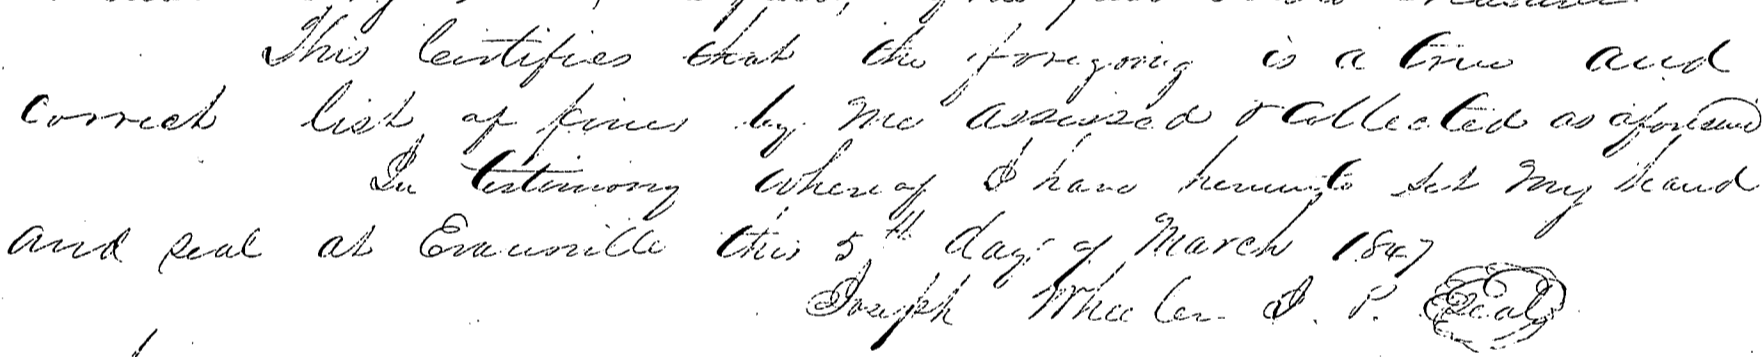 This Certifies that the foregoing is a true and
correct list of fines by me assessed & collected as aforesaid
In testimony whereof I have hereunto set my hand
and seal at Evansville this 5th day of March 1847
Joseph Wheeler J. P. Seal